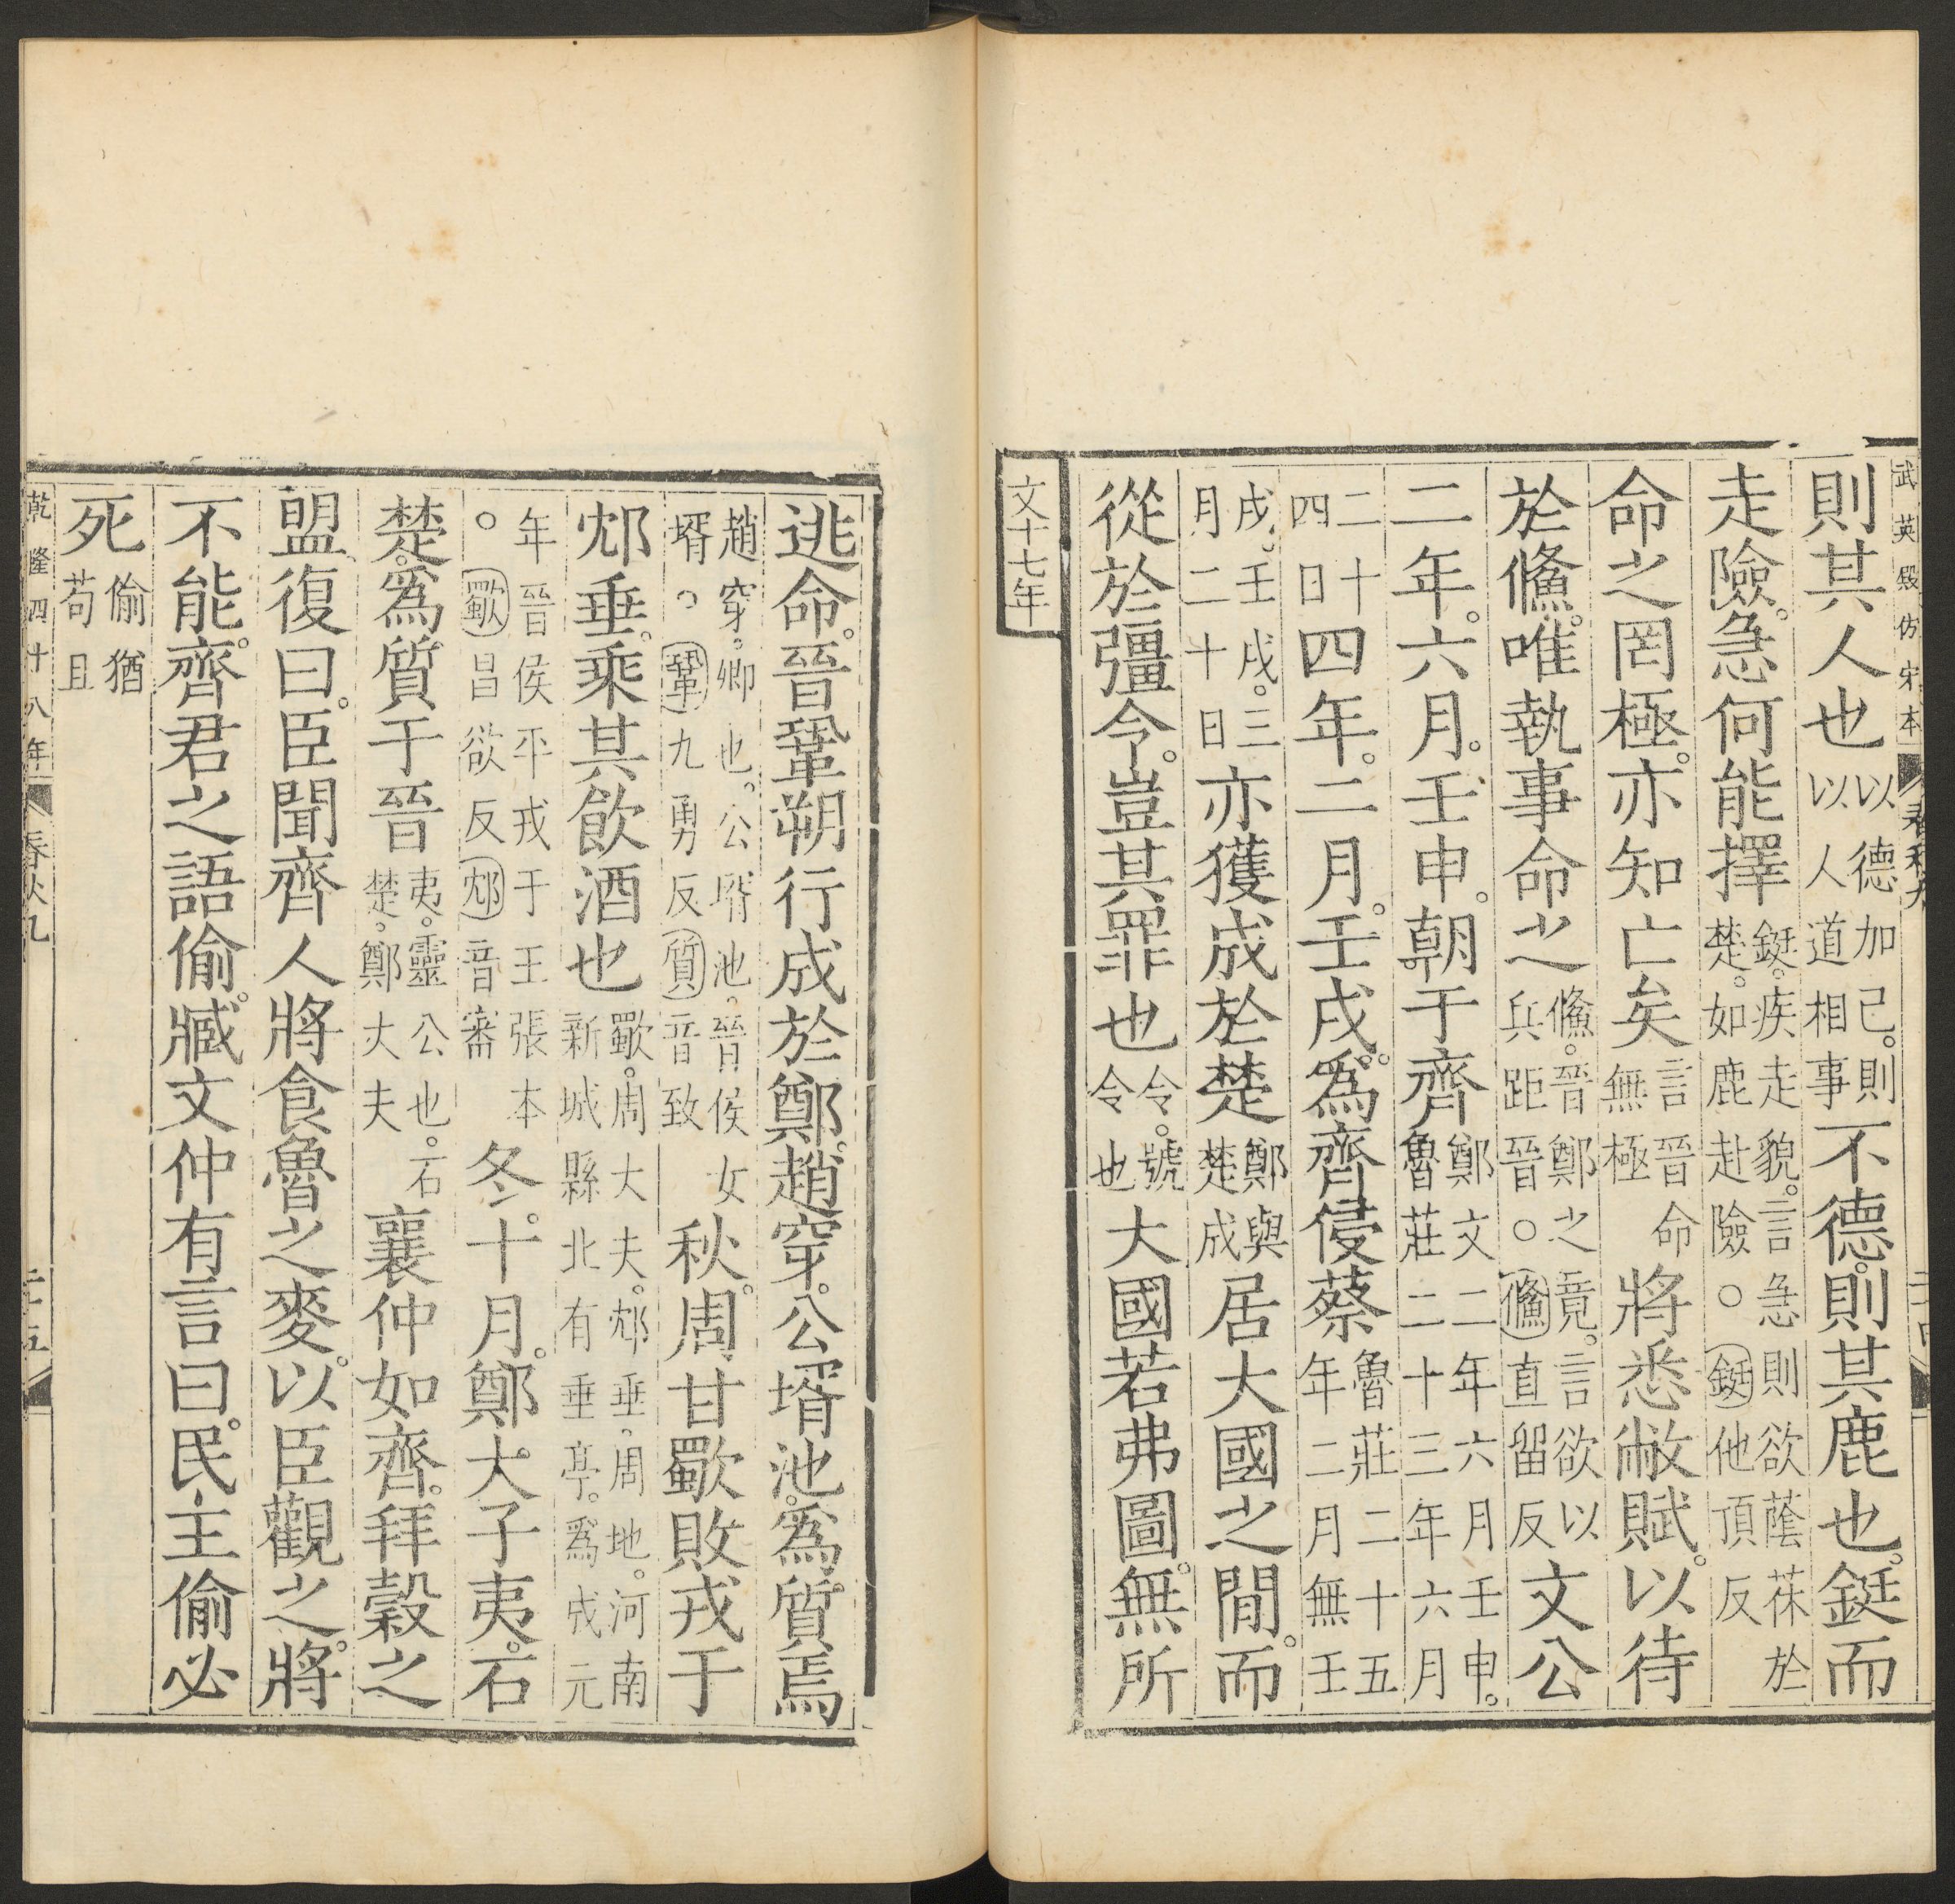 武英殿仿宋本　春秋九　二十四
則其人也以德加己。則以人道相事不德。則其鹿也。鋌而
走險。急何能擇鋌。疾走貌。言急則欲蔭茠於楚。如鹿赴險○鋌他頂反
命之罔極。亦知亡矣言晉命無極將悉敝賦。以待
於鯈。唯執事命之鯈。晉鄭之竟。言欲以兵距晉○鯈直留反文公
二年。六月。壬申。朝于齊鄭文二年六月壬申。魯莊二十三年六月
二十四日四年。二月。壬戌。爲齊侵蔡魯莊二十五年二月無壬
戌。壬戌。三月二十日亦獲成於楚鄭與楚成居大國之間。而
從於彊令。豈其罪也令。號令也大國若弗圖。無所
文十七年
逃命。晉鞏朔行成於鄭。趙穿。公壻池。爲質焉
趙穿。卿也。公壻池。晉侯女壻○鞏九勇反質音致秋。周甘歜敗戎于
邥垂。乘其飲酒也歜。周大夫。邥垂。周地。河南新城縣北有垂亭。爲成元
年晉侯平戎于王張本○歜昌欲反邥音審冬。十月。鄭大子夷。石
楚。爲質于晉夷。靈公也。石楚。鄭大夫襄仲如齊。拜穀之
盟。復曰。臣聞齊人將食魯之麥。以臣觀之。將
不能。齊君之語偷。臧文仲有言曰。民主偷必
死偷猶苟且
乾隆四十八年　春秋九　二十五